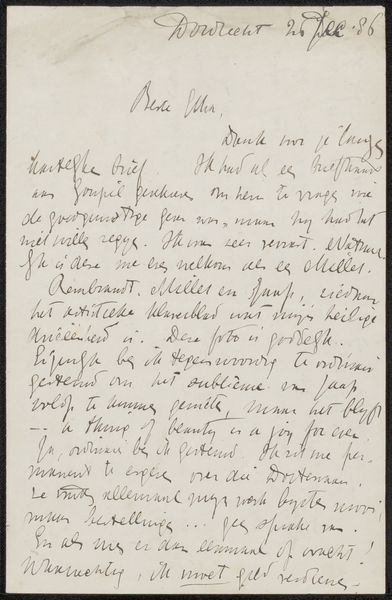 Dordrecht 26 Dec. 86
Beste John,
Dank voor je lange
hartelijke brief. Ik had al een briefkaart
aan Goupil geschreven om hem te vragen wie
de goedgunstige gever was, maar hij had het
niet willen zeggen. Ik was zeer verrast.
is deze me even welkom als een Millet.
Rembrandt, Millet en Jaap, ziedaar
het artistieke klaverblad wat mijn heilige
drieëenheid is. Deze foto is goddelijk.
Eigenlijk ben ik tegenwoordig te ordinair
gestemd om het sublieme van Jaap
volop te kunnen genieten, maar het blijft
— a thing of beauty is a joy for ever.
Ja, ordinair ben ik gestemd. Ik zit me per-
manent te ergeren over die Dortenaars.
Ze vinden allemaal mijn werk mooi
maar bestellingen ... geen sprake van.
En als men er dan eenmaal of wacht!
Waarachtig, ik moet geld verdienen